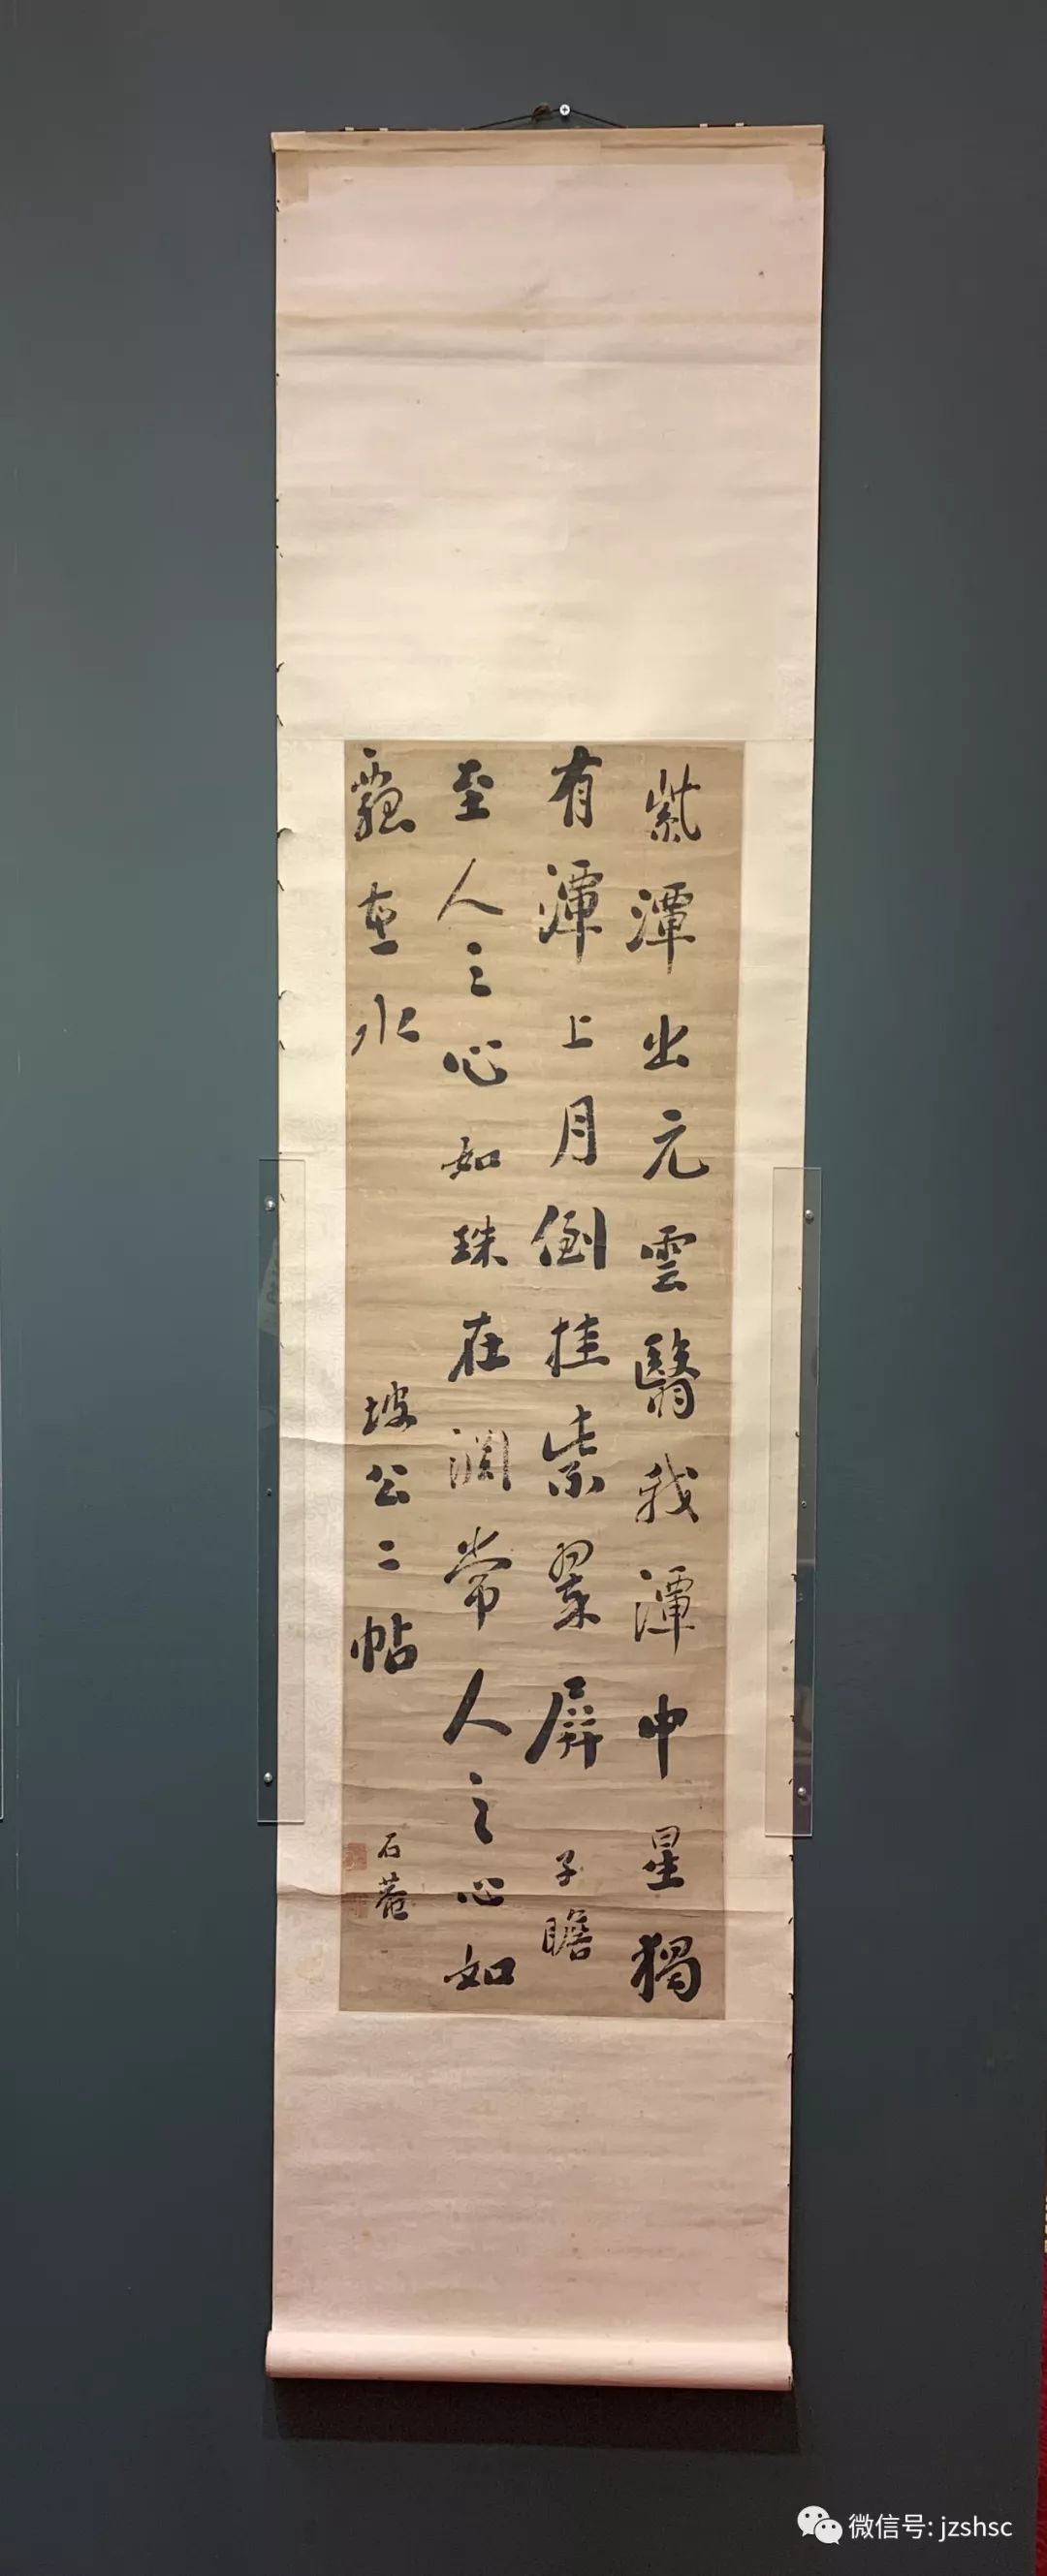 紫潭出元雲翳我潭中星獨
有潭上月倒挂紫翠屏 子瞻
至人之心如珠在淵常人之心如
瓢在水 坡公二帖
石菴
微信号: jzshsc